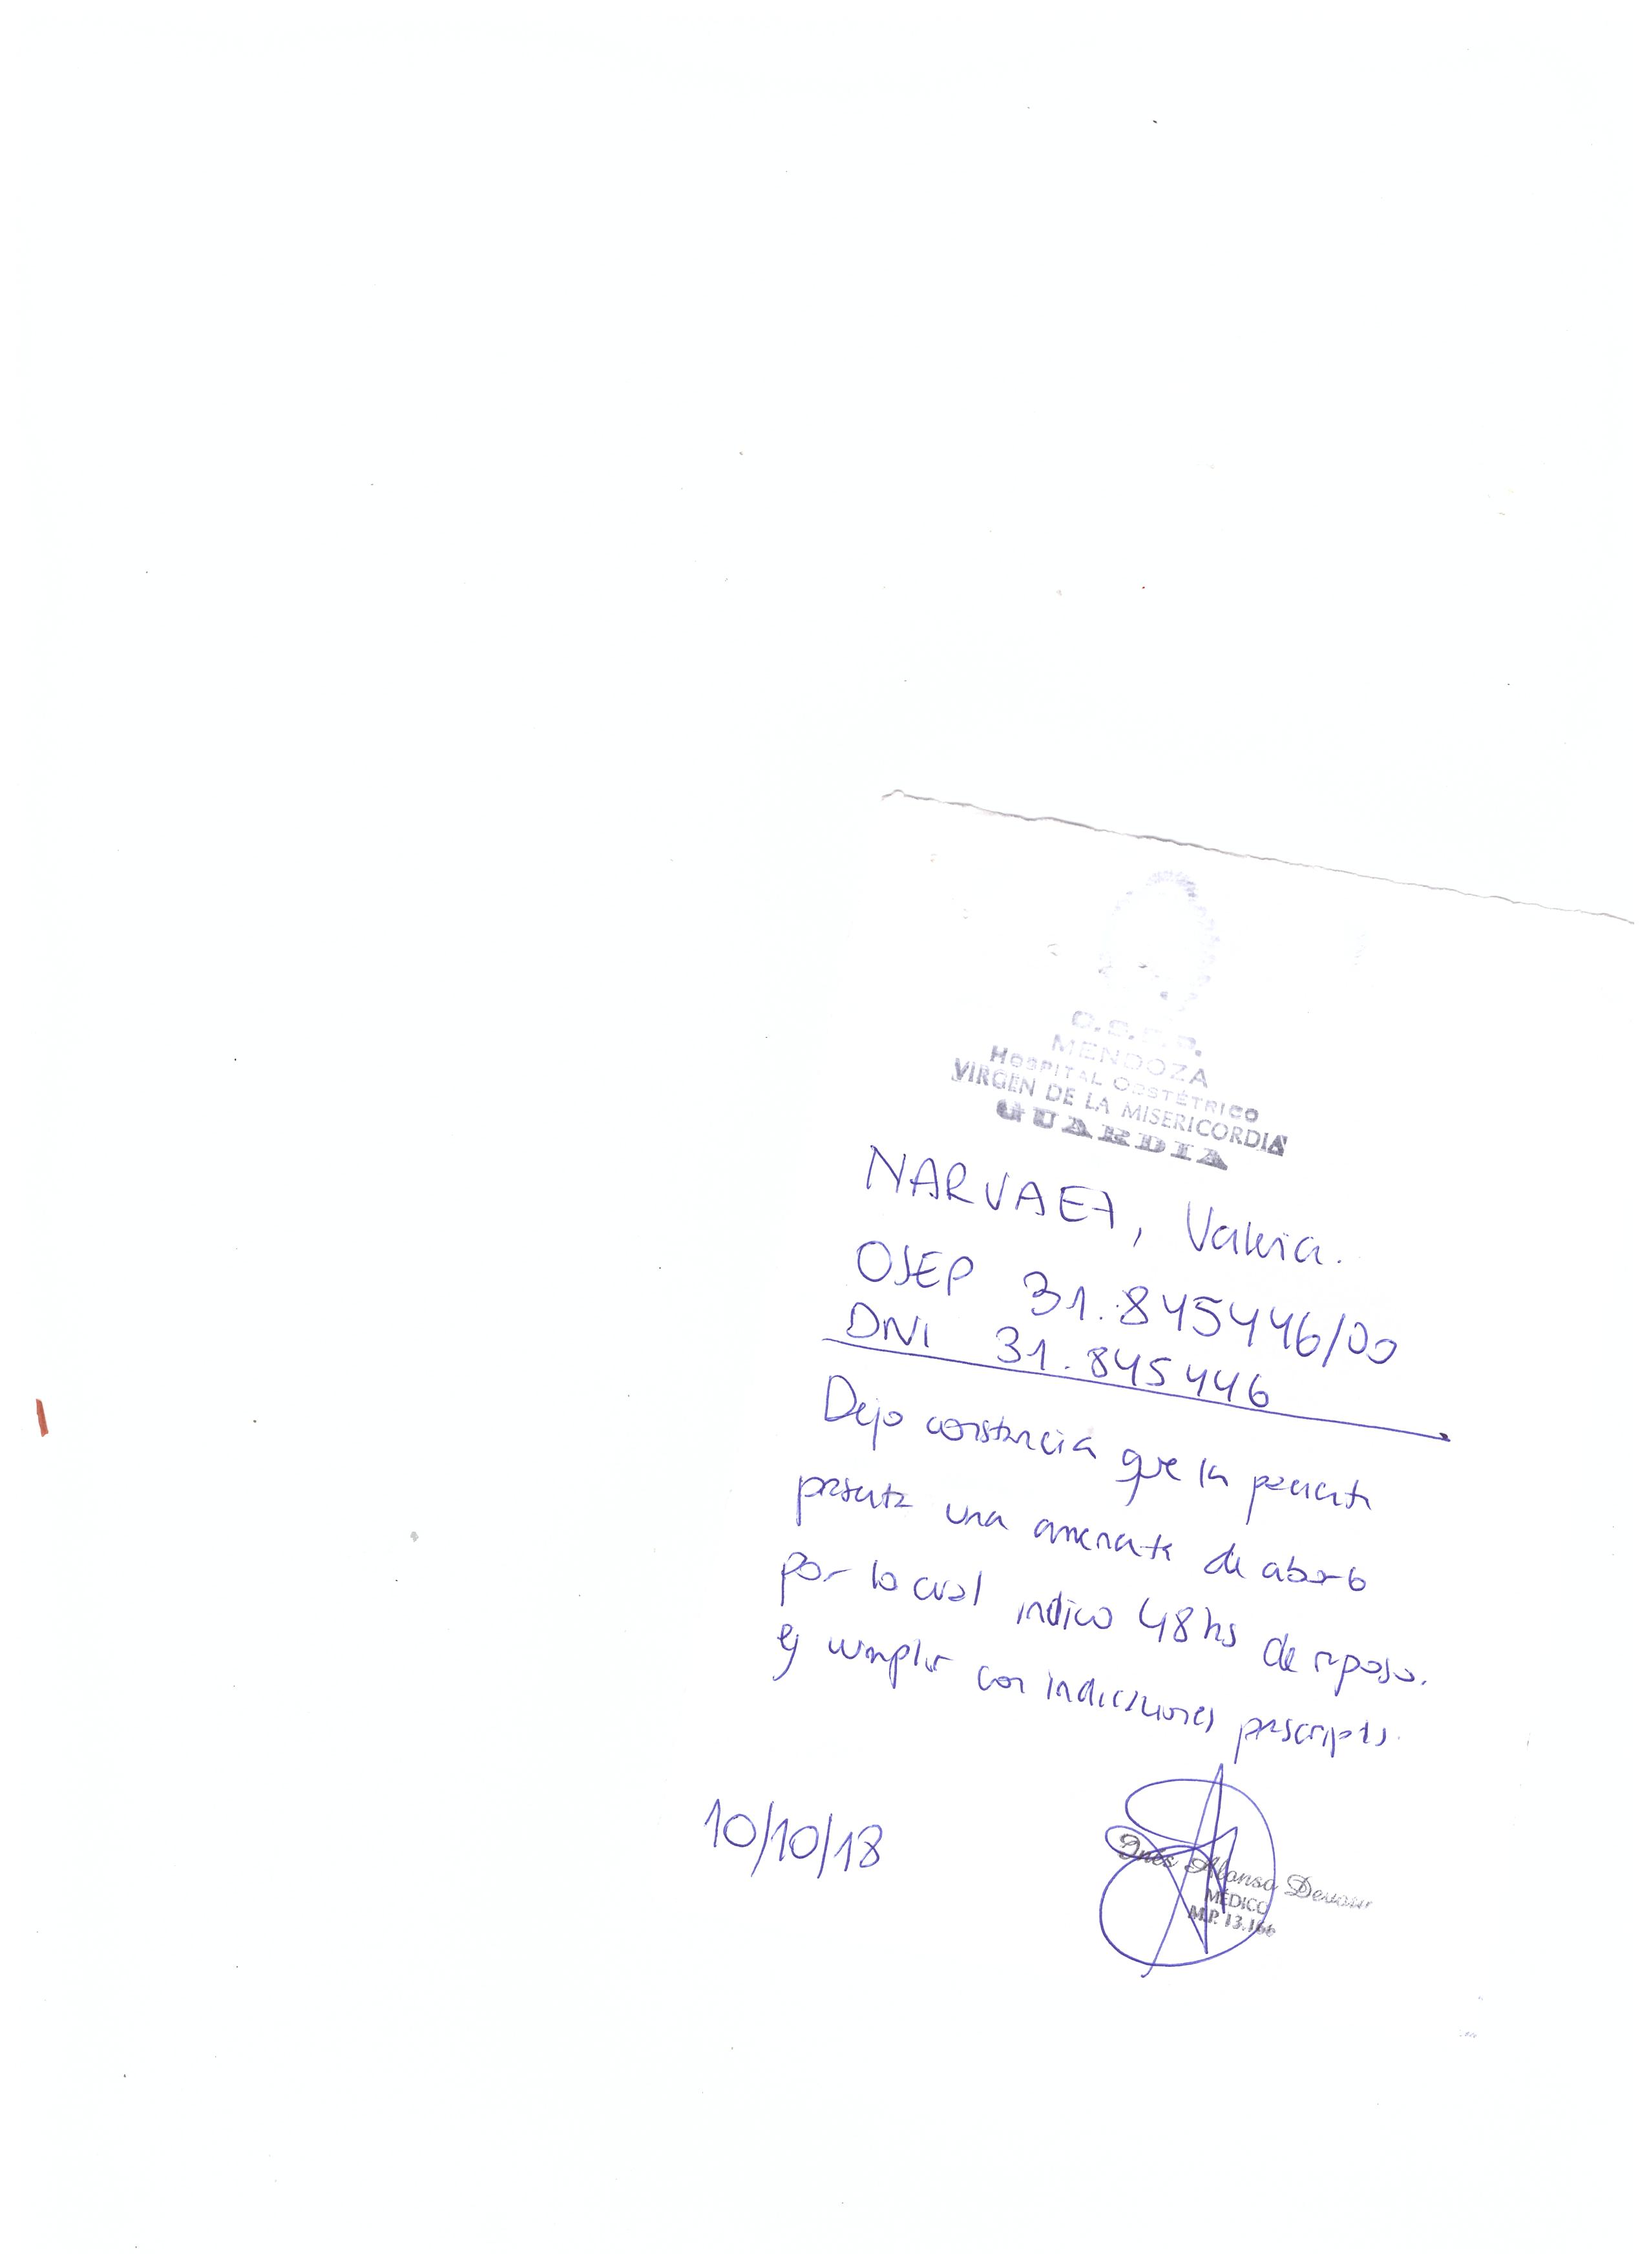 O.S.E.P.
MENDOZA
HOSPITAL OBSTÉTRICO
VIRGEN DE LA MISERICORDIA
GUARDIA
NARVAEZ, Valeria.
OSEP 31.845446/00
DNI 31.845446
Dejo constancia que la paciente
presenta una amenaza de aborto
por lo cual indico 48 hs de reposo.
y cumplir con indicaciones prescriptas.
10/10/18
Alonso
MÉDICO
M.P. 13.166